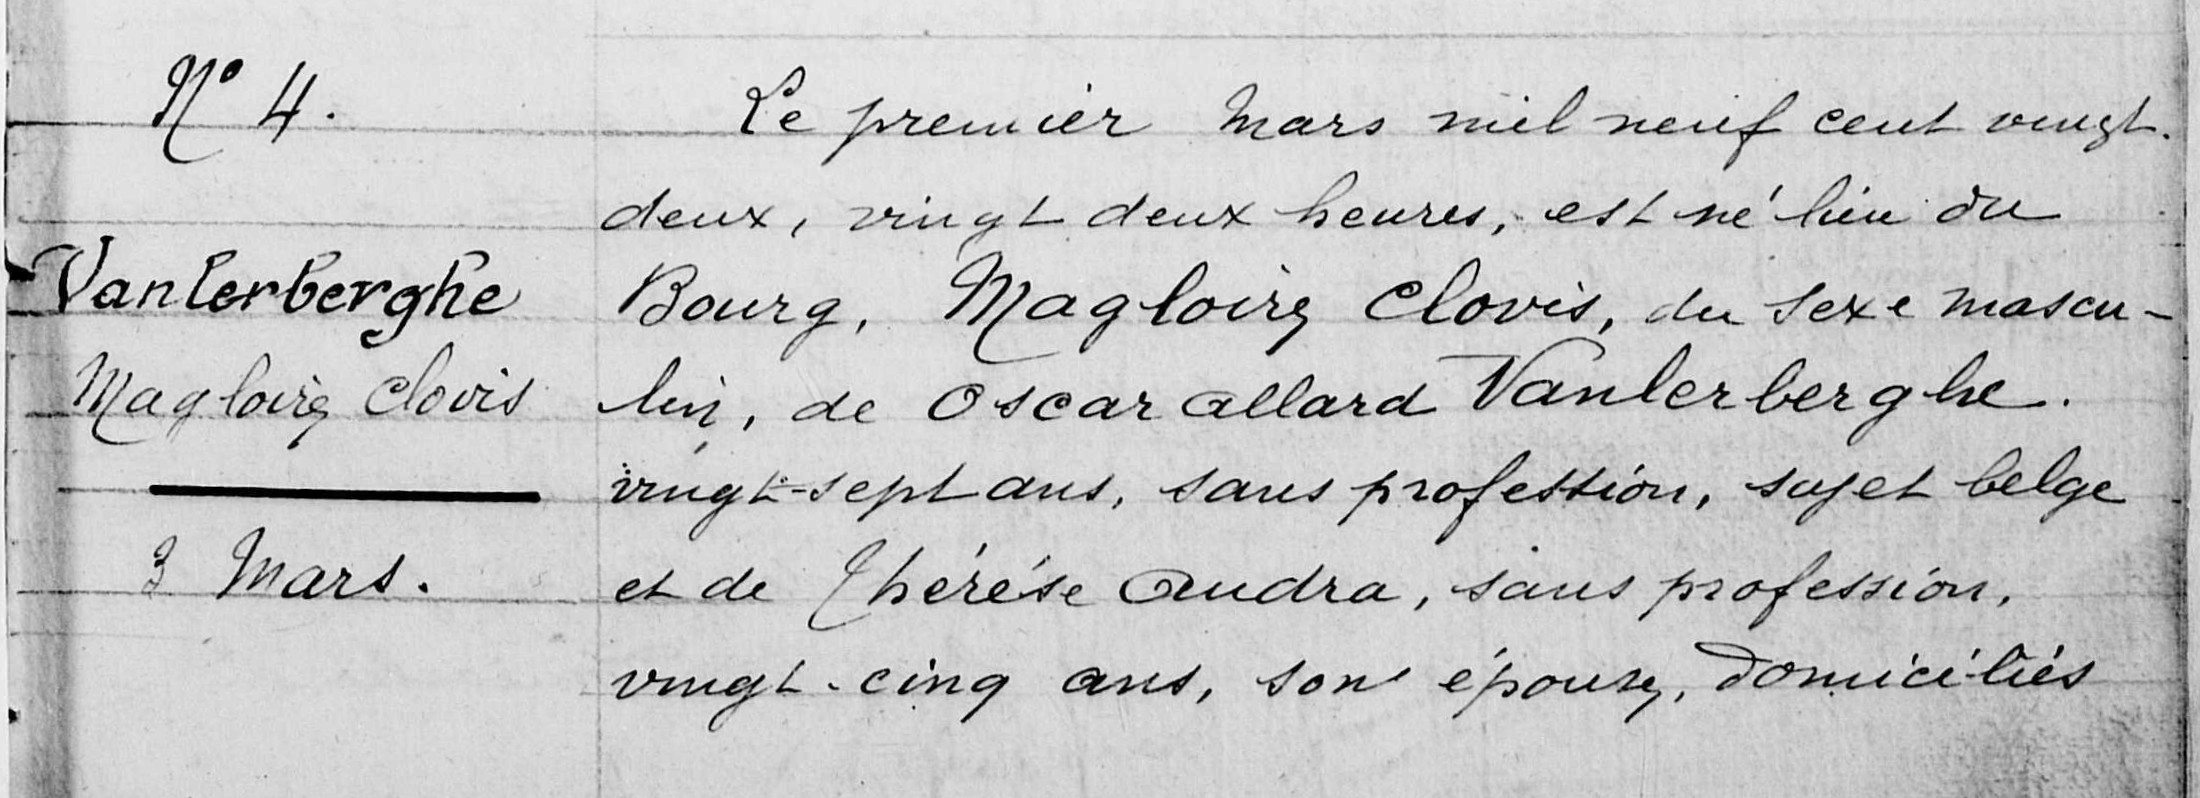 N° 4.
Vanlerberghe
Magloire Clovis
3 Mars.
Le premier Mars mil neuf cent vingt-
deux, vingt deux heures, est né lieu du
Bourg, Magloire Clovis, du sexe mascu-
lin, de Oscar Allard Vanlerberghe.
vingt-sept ans, sans profession, sujet belge
et de Thérèse Audra, sans profession,
vingt-cinq ans, son épouse, domiciliés